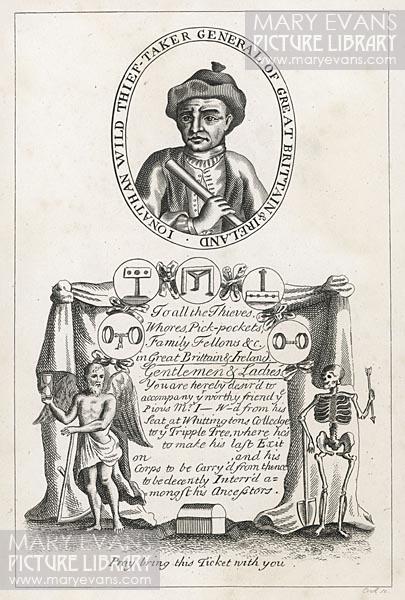 MARY EVANS
PICTURE LIBRARY
www.maryevans.com
IONATHAN WILD THIEF-TAKER GENERAL OF GREAT BRITTAIN & IRELAND
To all the Thieves,
Whores, Pick-pockets,
Family Fellons &c.
in Great Brittain & Ireland
Gentlemen & Ladies
You are hereby desir'd to
accompany yͤ worthy friend yͤ
Pious Mͬ. I— W—d from his
Seat at Whittingtons Colledge
to yͤ Tripple Tree, where he's
to make his last Exit
on , and his
Corps to be Carry'd from thence
to be decently Interr'd a=
mongst his Ancestors.
Pray bring this Ticket with you
MARY EVANS
PICTURE LIBRARY
www.maryevans.com